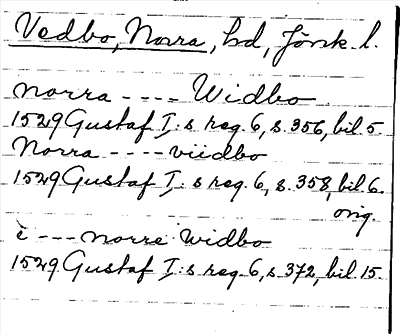 Vedbo, Norra, hd, Jönk. l.
norra - - - - Widbo
1529 Gustaf I:s reg. 6, s. 356, bil 5.
Norra - - - - viidbo
1529 Gustaf I:s reg. 6, s. 358, bil 6.
orig.
i - - - norre widbo
1529 Gustaf I:s reg. 6, s. 372, bil. 15.